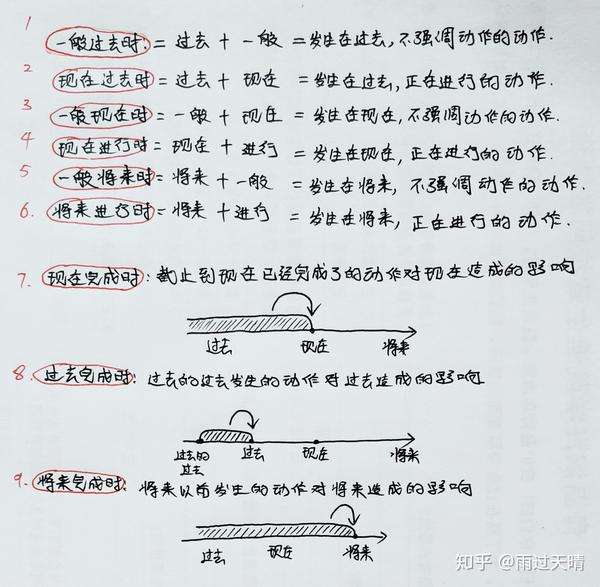 1
一般过去时：= 过去 + 一般 = 发生在过去，不强调动作的动作.
2
现在过去时 = 过去 + 现在 = 发生在过去，正在进行的动作.
3
一般现在时 = 一般 + 现在 = 发生在现在，不强调动作的动作.
4
现在进行时 = 现在 + 进行 = 发生在现在，正在进行的动作.
5
一般将来时 = 将来 + 一般 = 发生在将来，不强调动作的动作.
6. 将来进行时 = 将来 + 进行 = 发生在将来，正在进行的动作.
7. 现在完成时：截止到现在已经完成了的动作对现在造成的影响
过去 现在 将来
8. 过去完成时：过去的过去发生的动作对过去造成的影响
过去的过去 过去 现在 将来
9. 将来完成时：将来以前发生的动作对将来造成的影响
过去 现在 将来
知乎 @雨过天晴